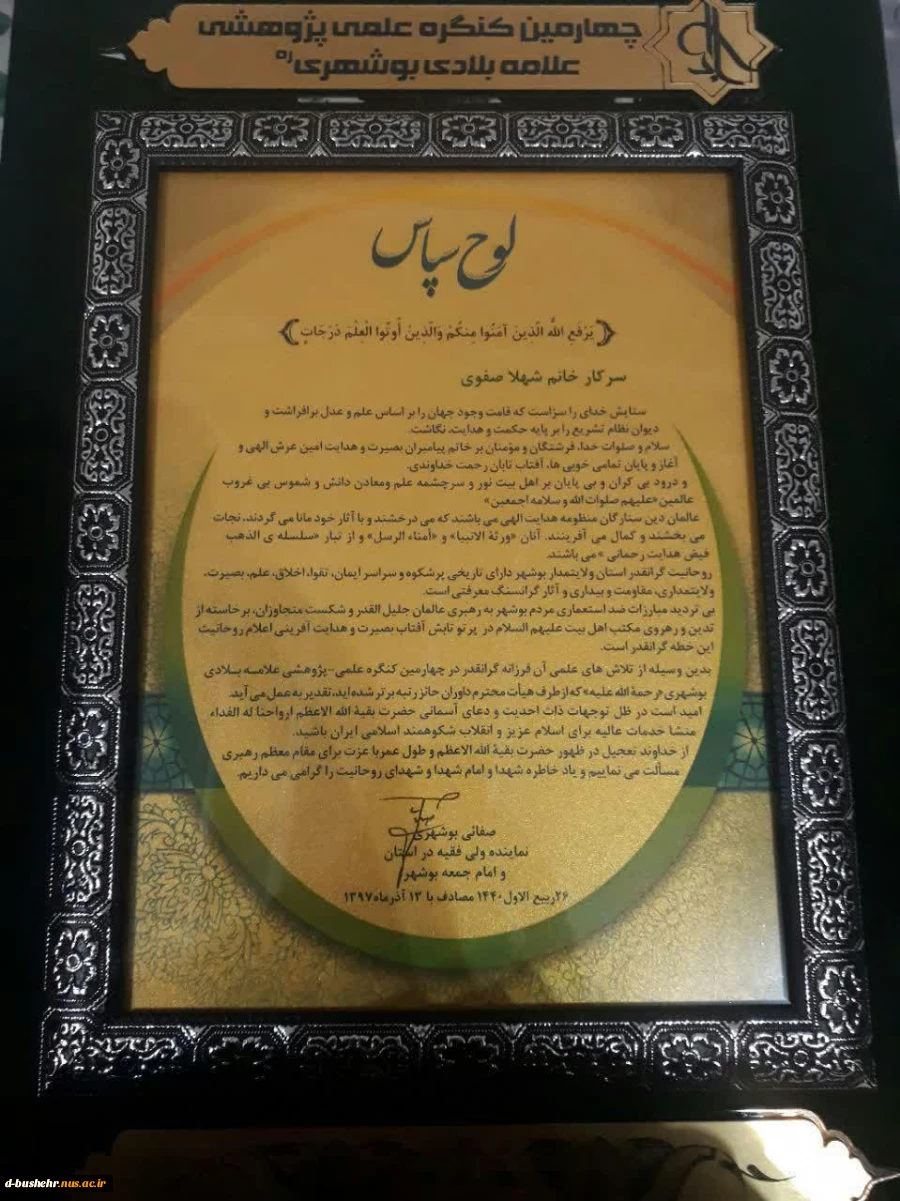 چهارمین کنگره علمی پژوهشی
علامه بلادی بوشهری ره
لوح سپاس
﴿یَرْفَعِ اللَّهُ الَّذِینَ آمَنُوا مِنکُمْ وَالَّذِینَ أُوتُوا الْعِلْمَ دَرَجَاتٍ﴾
سرکار خانم شهلا صفوی
ستایش خدای را سزاست که قامت وجود جهان را بر اساس علم و عدل برافراشت و
دیوان نظام تشریع را بر پایه حکمت و هدایت، نگاشت.
سلام و صلوات خدا، فرشتگان و مؤمنان بر خاتم پیامبران بصیرت و هدایت امین عرش الهی و
آغاز و پایان تمامی خوبی ها، آفتاب تابان رحمت خداوندی.
و درود بی کران و بی پایان بر اهل بیت نور و سرچشمه علم ومعادن دانش و شموس بی غروب
عالمین «علیهم صلوات الله و سلامه اجمعین»
عالمان دین ستارگان منظومه هدایت الهی می باشند که می درخشند و با آثار خود مانا می گردند، نجات
می بخشند و کمال می آفرینند. آنان «ورثة الانبیا» و «أمناء الرسل» و از تبار «سلسله ی الذهب
فیض هدایت رحمانی» می باشند.
روحانیت گرانقدر استان ولایتمدار بوشهر دارای تاریخی پرشکوه و سراسر ایمان، تقوا، اخلاق، علم، بصیرت،
ولایتمداری، مقاومت و بیداری و آثار گرانسنگ معرفتی است.
بی تردید مبارزات ضد استعماری مردم بوشهر به رهبری عالمان جلیل القدر و شکست متجاوزان، برخاسته از
تدین و رهروی مکتب اهل بیت علیهم السلام در پرتو تابش آفتاب بصیرت و هدایت آفرینی اعلام روحانیت
این خطه گرانقدر است.
بدین وسیله از تلاش های علمی آن فرزانه گرانقدر در چهارمین کنگره علمی-پژوهشی علامه بلادی
بوشهری «رحمة الله علیه» که از طرف هیأت محترم داوران حائز رتبه برتر شده اید، تقدیر به عمل می آید.
امید است در ظل توجهات ذات احدیت و دعای آسمانی حضرت بقیة الله الاعظم ارواحنا له الفداء
منشا خدمات عالیه برای اسلام عزیز و انقلاب شکوهمند اسلامی ایران باشید.
از خداوند تعجیل در ظهور حضرت بقیة الله الاعظم و طول عمر با عزت برای مقام معظم رهبری
مسألت می نماییم و یاد خاطره شهدا و امام شهدا و شهدای روحانیت را گرامی می داریم.
صفائی بوشهری
نماینده ولی فقیه در استان
و امام جمعه بوشهر
۲۶ ربیع الاول ۱۴۴۰ مصادف با ۱۳ آذرماه ۱۳۹۷
d-bushehr.nus.ac.ir